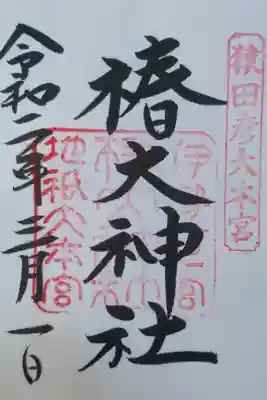 猿田彦大本宮
椿大神社
伊勢一宮
地祇大本宮
令和二年三月一日